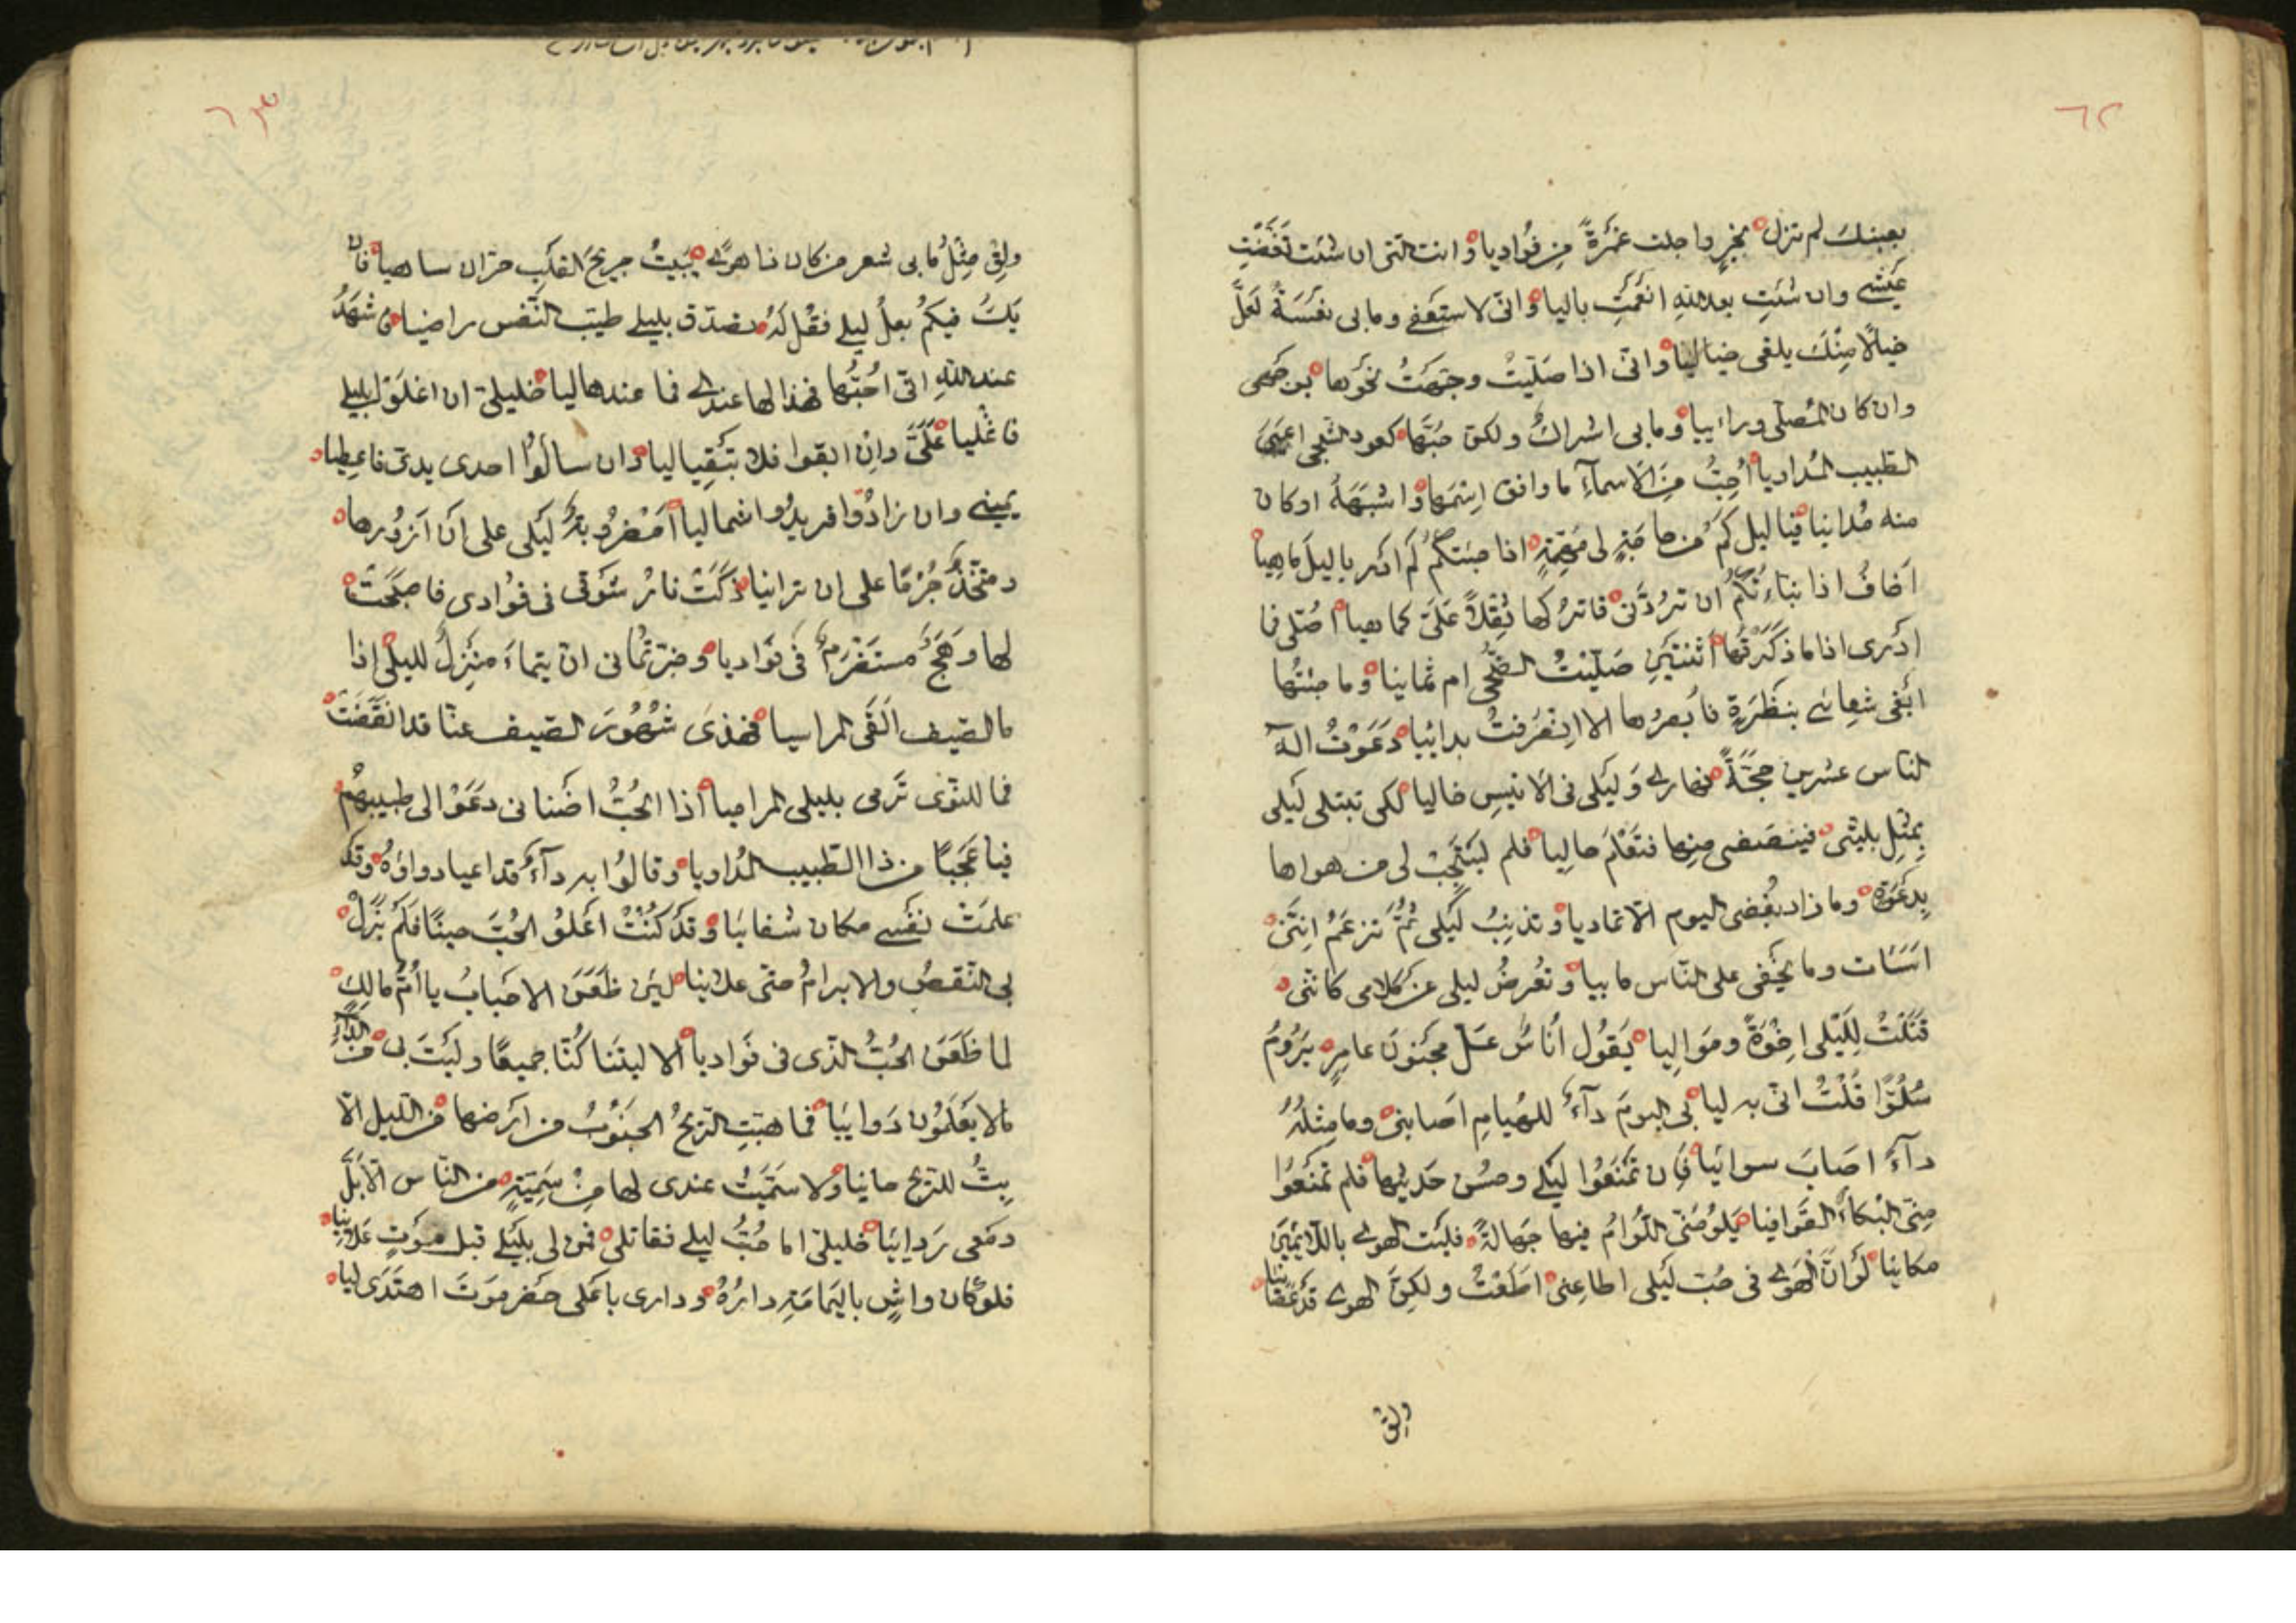 ٦٢
بعينك لم تزل بخير واجلت غمرة من فؤاديا وانت التى ان شئت نغضت
عيشى وان شئت بعد الله انعمت باليا وانى لاستغفى ومابى نعسة لعل
خيالا منك يلقى خياليا وانى اذا صليت وجهت نحوها بوجهى
وان كان المصلى ورائيا ومابى اشراك ولكن حبها كعود الشجى اعيى
الطبيب المداويا احب من الاسمآء ما وافق اسمها واشبهه اوكان
منه مدانيا فيا ليل كم من حاجة لى مهمة اذا جئتكم لم ادر يا ليل ماهيا
اخاف اذا نباءتكم ان تردنى فاتركها ثقلا على كما هيا اصلى فا
ادرى اذا ما ذكرتها اثنتين صليت الضحى ام ثمانيا وما جئتها
ابغى شفائى بنظرة فابصرها الا انصرفت بدائيا دعوت اله
الناس عشرين حجة نهارى وليلى فى الانيس خاليا لكى تبتلى ليلى
بمثل بليتى فينصفنى منها فتعلم حاليا فلم يستجب لى من هواها
بدعوة وما زاد بغضى اليوم الا تماديا وتذنب ليلى ثم تزعم اننى
اسات وما يخفى على الناس مابيا وتعرض ليلى عن كلامى كاننى
قتلت لليلى اخوة ومواليا يقول اناس عل مجنون عامر يروم
سلوا قلت انى به ليا بى اليوم دآء للهيام اصابنى وما مثله
دآء اصاب سوائيا فان تمنعوا ليلى وحسن حديثها فلم تمنعوا
منى البكاء القوافيا يلومنى اللوام فيها جهالة فليت الهوى باللائمين
مكانيا لو ان الهوى فى حب ليلى اطاعنى اطعت ولكن الهوى قد عصانيا
ولق
٦٣
ولق مثل مابى شعر من كان ذا هوى يبيت جريح القلب حران ساهيا فان
يك فيكم بعل ليلى فقل له تصدق بليلى طيب النفس راضيا شهد
عند الله انى احبها فهذا لها عندى فما عندها ليا خليلى ان اغلوا بليلى
فاغليا على وان ابقوا فلا تبقيا ليا وان سالوا احدى يدى فاعطيا
يمينى وان زادوا فريدوا شماليا امضروبة ليلى على ان ازورها
ومتخذ جرما على ان ترانيا ذكت نار شوقى فى فؤادى فاصبحت
لها وهج مستضرم فى فؤاديا وخبرتمانى ان تيماء منزل لليلى اذا
ما الصيف القى المراسيا فهذى شهور الصيف عنا قد انقضت
فما للنوى ترمى بليلى المراميا اذا الحب اضنانى دعوا لى طبيبهم
فيا عجبا من ذا الطبيب المداويا وقالوا به دآء قد اعيا دواؤه وقد
علمت نفسى مكان شفائيا وقد كنت اعلو الحب حينا فلم يزل
بى النقض والابرام حتى علانيا لئن ظعن الاحباب يا ام مالك
لما ظعن الحب الذى فى فواديا الا ليتنا كنا جميعا وليت بى من الدآء
مالا يعلمون دوائيا فما هبت الريح الجنوب من ارضها من الليل الا
بت للريح حانيا ولا سميت عندى لها من سمية من الناس الا بل
دمعى ردائيا خليلى اما حب ليلى فقاتلى فمن لى بليلى قبل موت علانيا
فلو كان واش باليمامة داره ودارى باعلى حضرموت اهتدى ليا